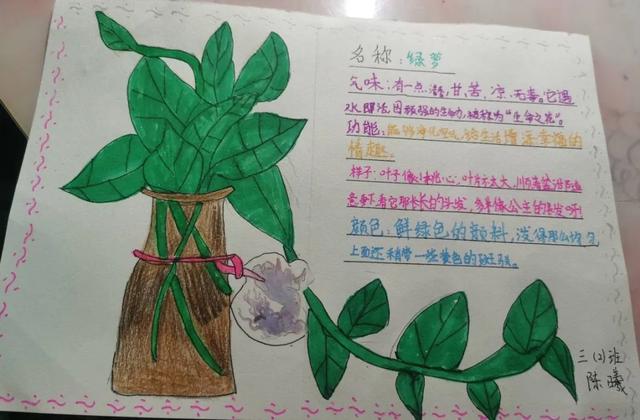 名称:绿萝
气味:有一点潜,甘苦、凉、无毒。它遇
水即活,因顽强的生命力,被称为“生命之花”。
功能:能够净化空气,给生活增添幸福的
情趣。
样子:叶子像小桃心,叶片不太大,顺着盆沿
垂下看它那长长的头发,多像公主的黑发呀
颜色:鲜绿色的颜料,泼得那么均匀
上面还稍带一些黄色的斑斑。
三(2)班
陈曦